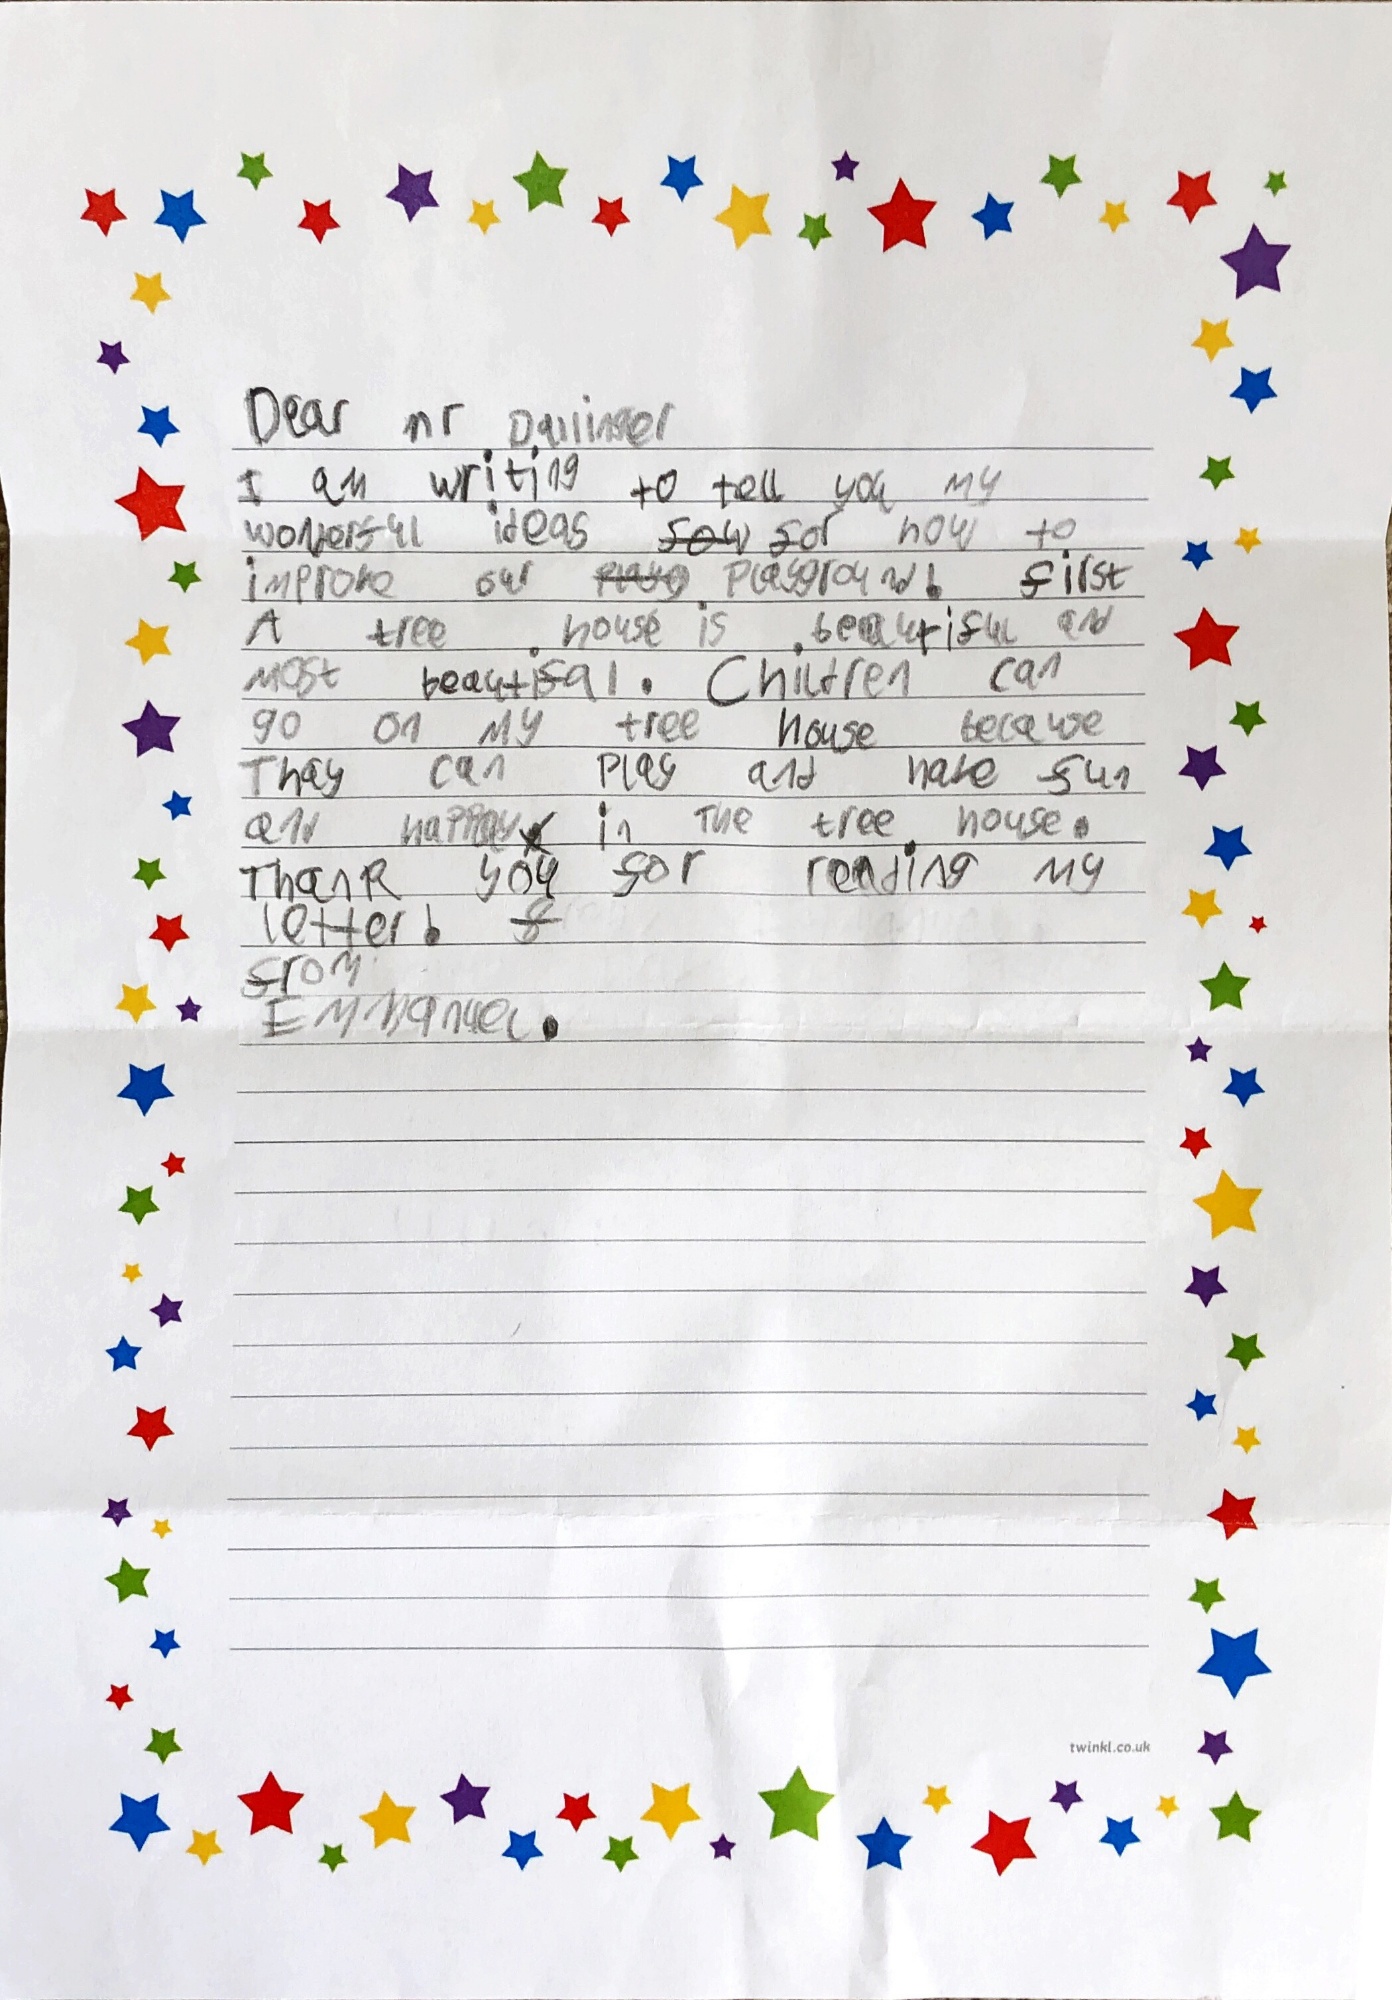 Dear mr Dallinger
I am writing to tell you my
wonerful ideas fow for how to
improve our playg playground! first
A tree house is beautiful and
most beautifal. Children can
go on my tree house because
Thay can play and have fun
and happy in the tree house.
Thank you for reading my
letter! f
from
Emmanuel.
twinkl.co.uk